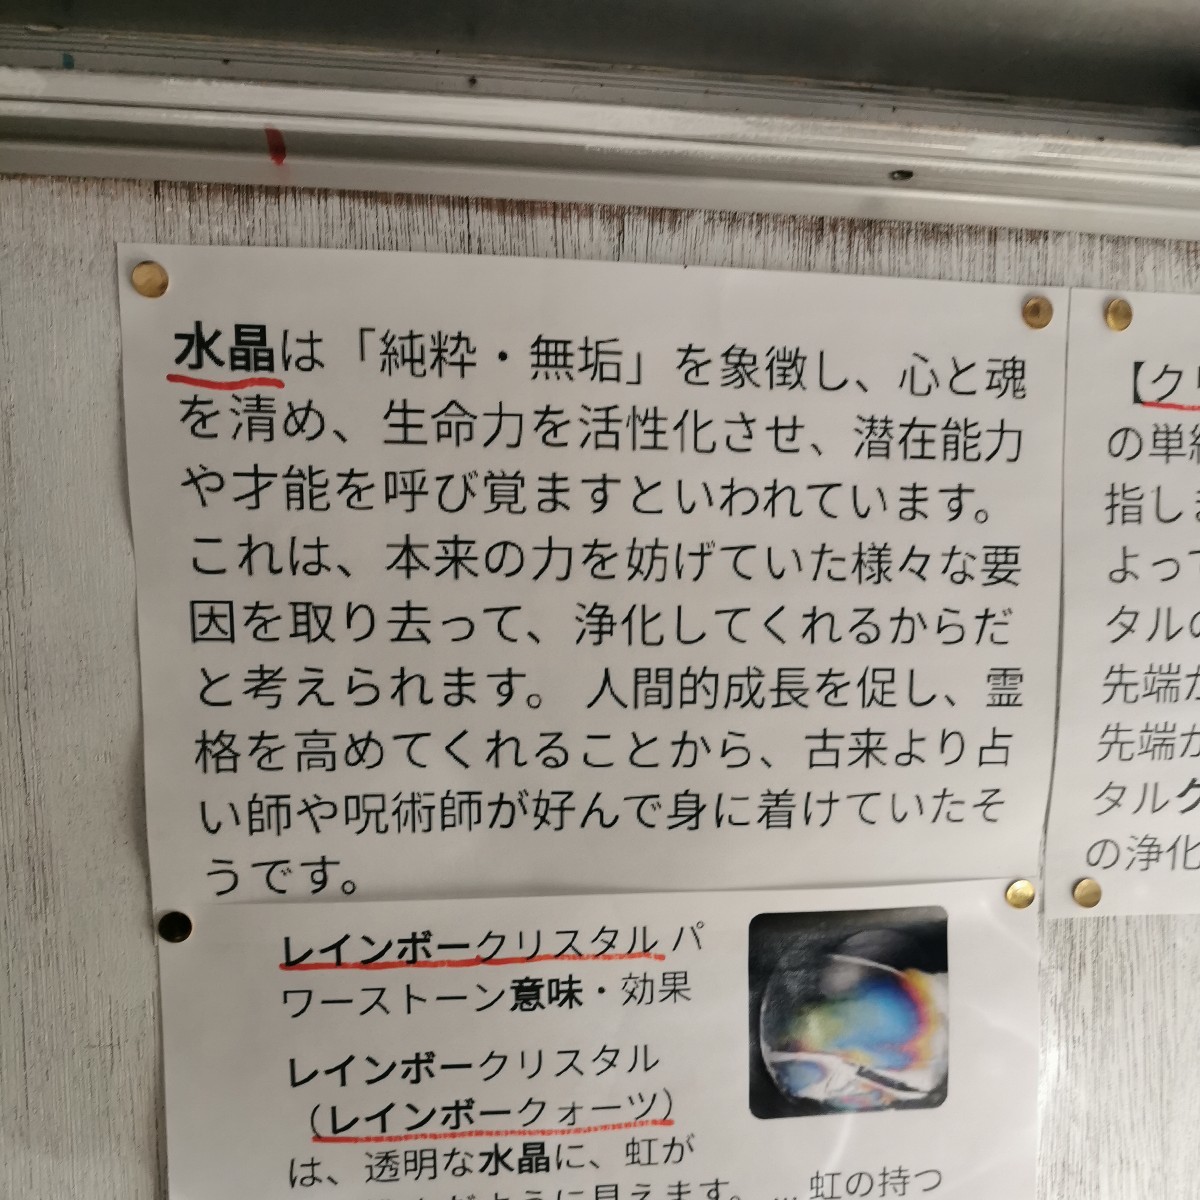 水晶は「純粋・無垢」を象徴し、心と魂
を清め、生命力を活性化させ、潜在能力
や才能を呼び覚ますといわれています。
これは、本来の力を妨げていた様々な要
因を取り去って、浄化してくれるからだ
と考えられます。 人間的成長を促し、霊
格を高めてくれることから、古来より占
い師や呪術師が好んで身に着けていたそ
うです。
レインボークリスタル パ
ワーストーン意味・効果
レインボークリスタル
（レインボークォーツ）
は、透明な水晶に、虹が
ように見えます。... 虹の持つ
【ク
の単
指し
よって
タルの
先端
先端
タルク
の浄化